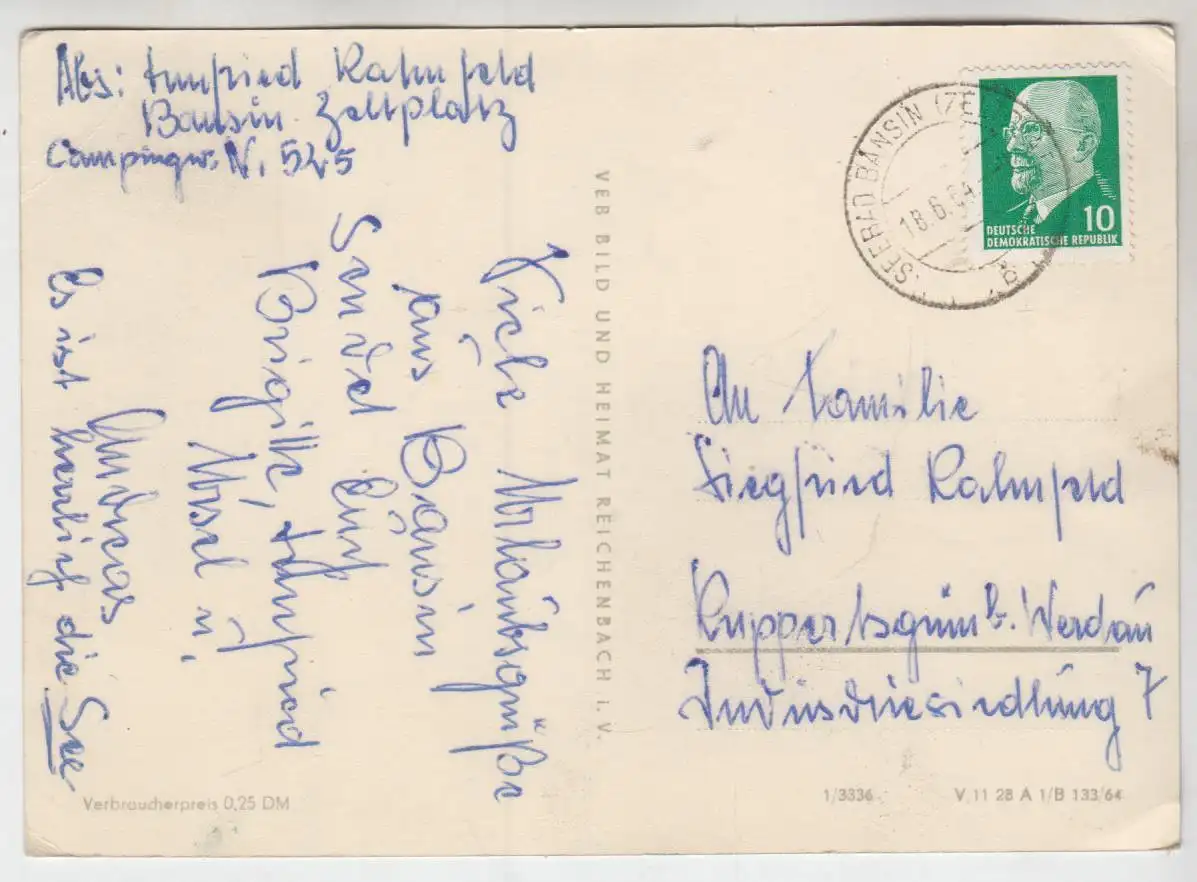 Abs: Manfried Rahnfeld
Bansin Zeltplatz
Campingw. N. 525
Viele Urlaubsgrüße
aus Bansin
Sendet Euch
Brigitte, Manfried
Ursel u.
Andreas
Es ist herrlich die See
VEB BILD UND HEIMAT REICHENBACH i. V.
SEEBAD BANSIN
18.6.64
B
10
DEUTSCHE
DEMOKRATISCHE REPUBLIK
An Familie
Siegfried Rahnfeld
Ruppertsgrün b. Werdau
Industriesiedlung 7
Verbraucherpreis 0,25 DM
1/3336 V 11 28 A 1/B 133/64